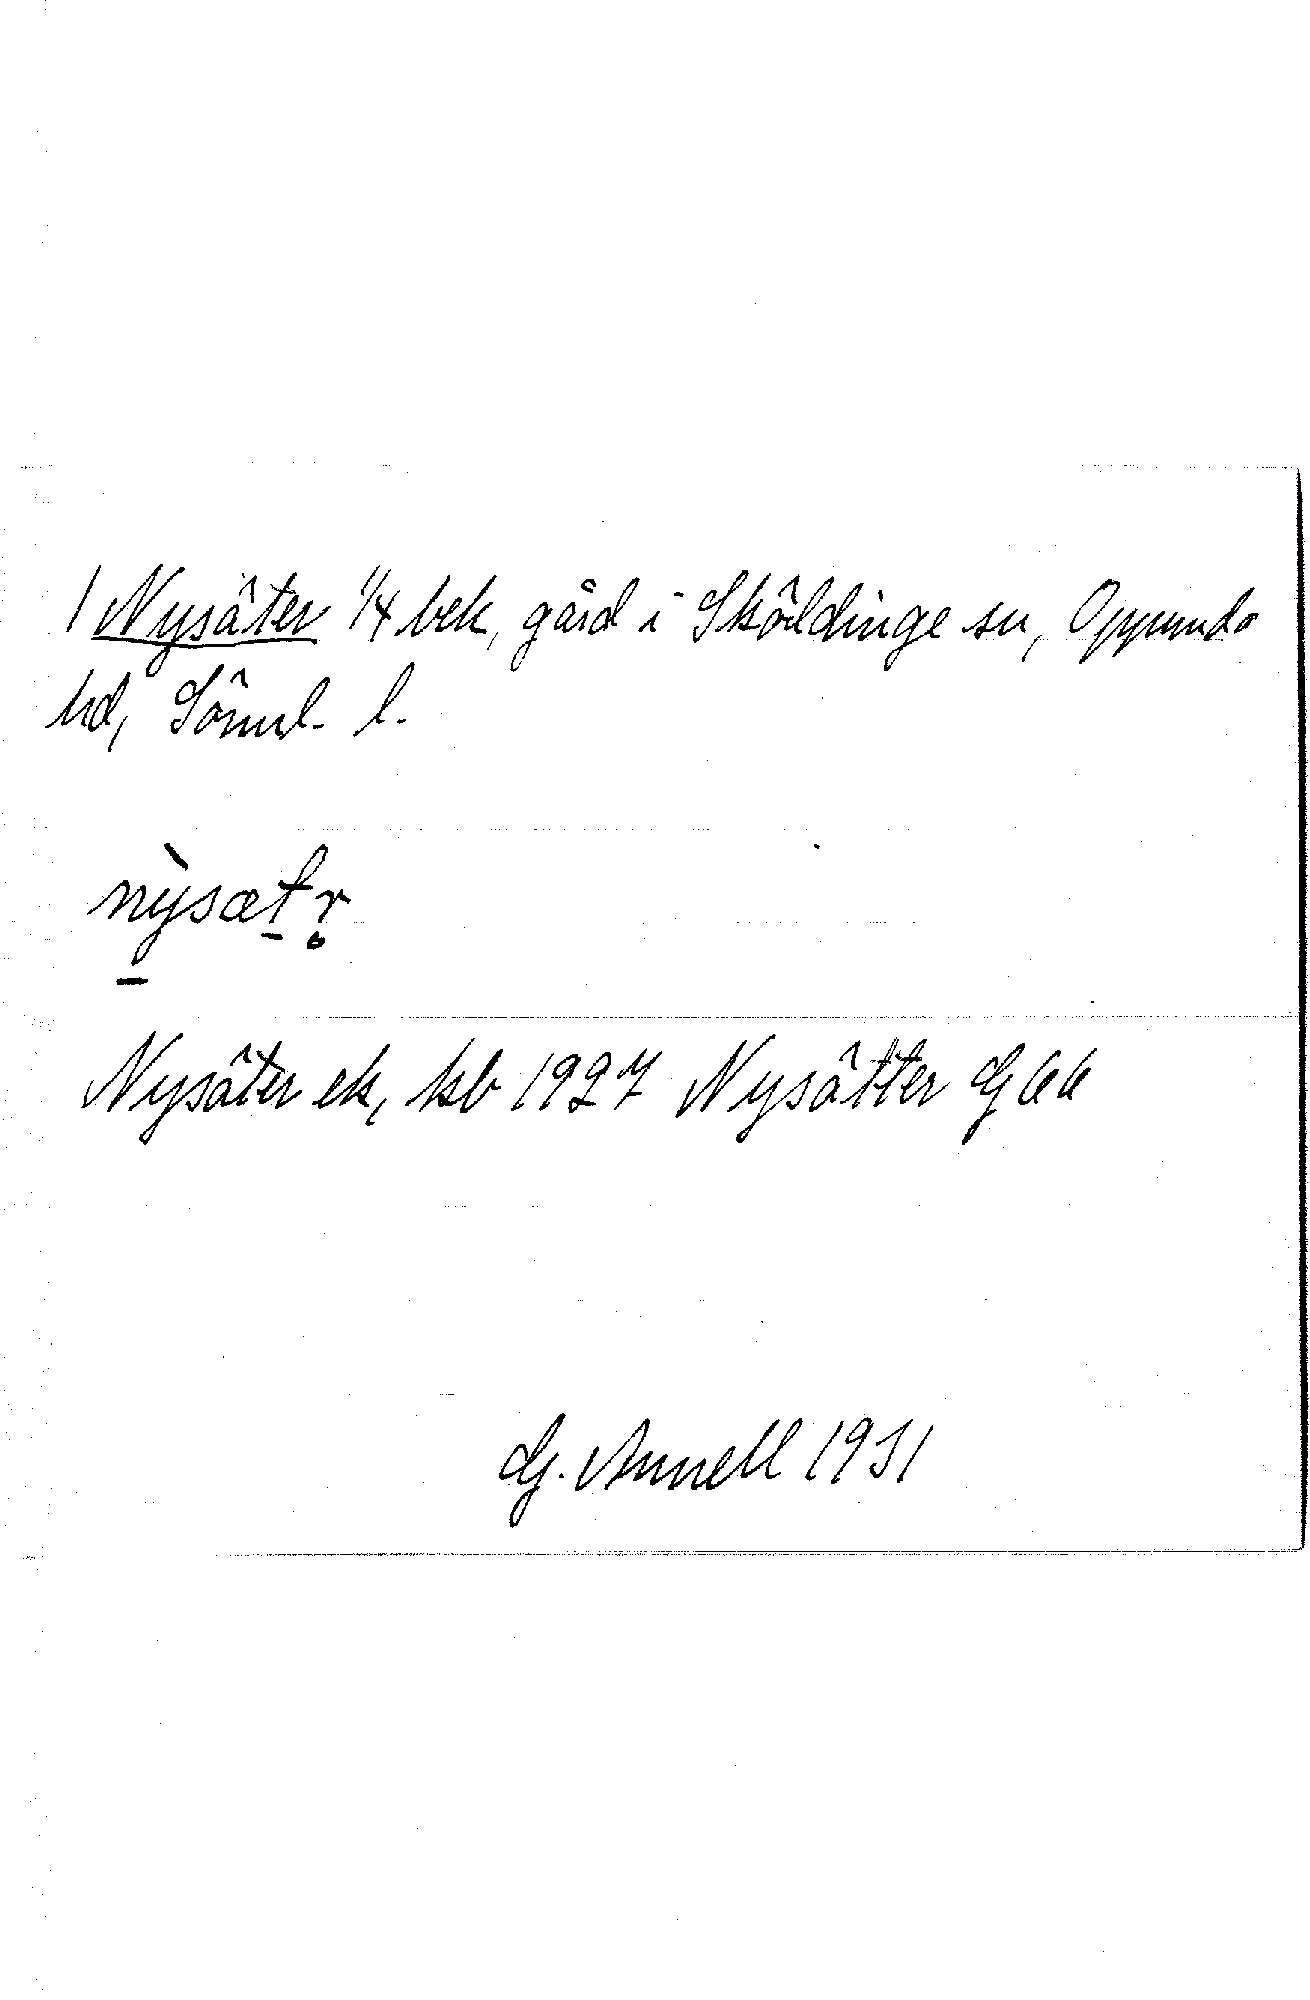 1 Nysäter 1/4 bek, gård i Sköldinge sn, Oppunda
hd, Söml. l.
nỳsætr̥
Nysäter ek, kb 1927 Nysätter G66
G. Annell 1931